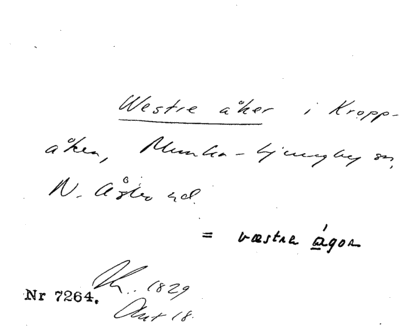 Westre åker i Kropp-
åkra, Munka-Ljungby sn,
N. Åsbo hd.
= væstra ågor
1829
Nr 7264. Akt 18.